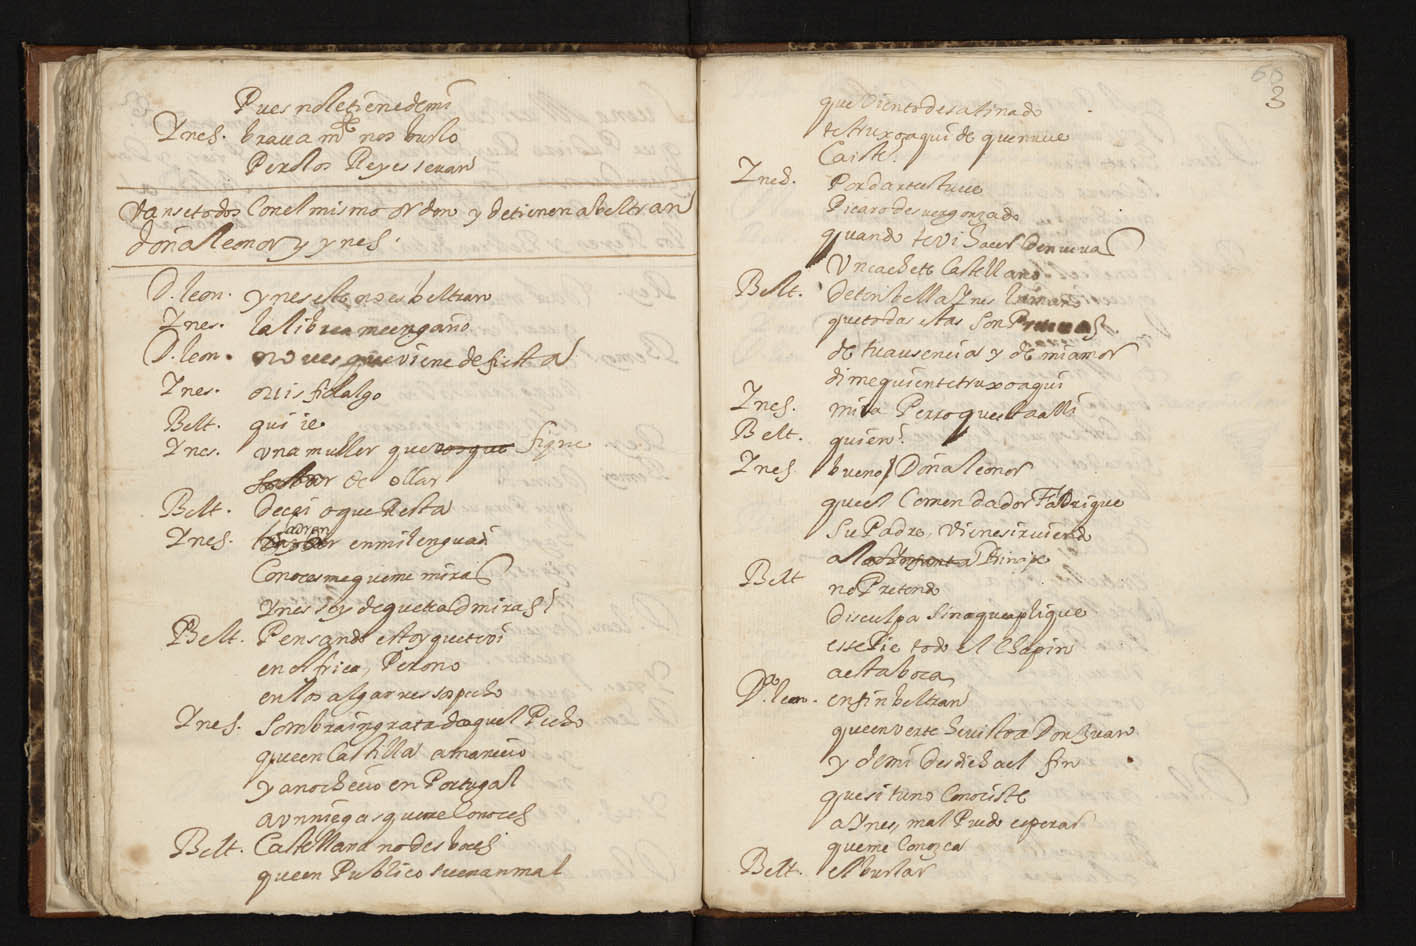 Pues no le tiene de mi
Ynes. braua mte nos burlo
Pero los Reyes se van
Vanse todos Con el mismo orden y detienen a beltran
doña leonor y ynes.
D. leon. ynes este no es beltran
Ynes. la librea me engaño
D. leon. no ves que viene de fiesta
Ynes. ouis fidalgo
Belt. qui ie
Ynes. vna muller que vos que signe
de ollar
Belt. Deçei o que Resta
Ynes. en mi lengua
Conocesme que me miras
Ynes soy de que te admiras
Belt. Pensando estoy que te vi
en africa, Pero no
en los algarues sospecho
Ynes. Sombra ingrata de aquel Pecho
que en Castilla amaneçio
y anocheçio en Portugal
aun niegas que me Conoces
Belt. Castellana no des boçes
que en Publico suenan mal
60
3
que Viento desatinado
te truxo aqui de que nuue
Caiste.
Ynes.
Picaro desuergonzado
quando te vi haçer Den uevas
Un cachete Castellano
Belt. deton bella Ynes
que todas estas son
de tu ausencia y de mi amor
dime quien te truxo aqui
Ynes. mira Perro que esta alli
Belt. quien?
Ynes. bueno Doña leonor
que el Comendador Fadrique
su Padre, Viene siruiendo
a la Infanta Prinçipe
Belt no Pretendo
Disculpa sino que aplique
esse Pie todo el Chapin
a esta boca
Da. leon. en fin beltran
que en verte he visto a Don Juan
y de mi desdicha el fin
que si tu no Conociste
a Ynes, mal Puedo esperar
que me Conozca
Belt. el burlar